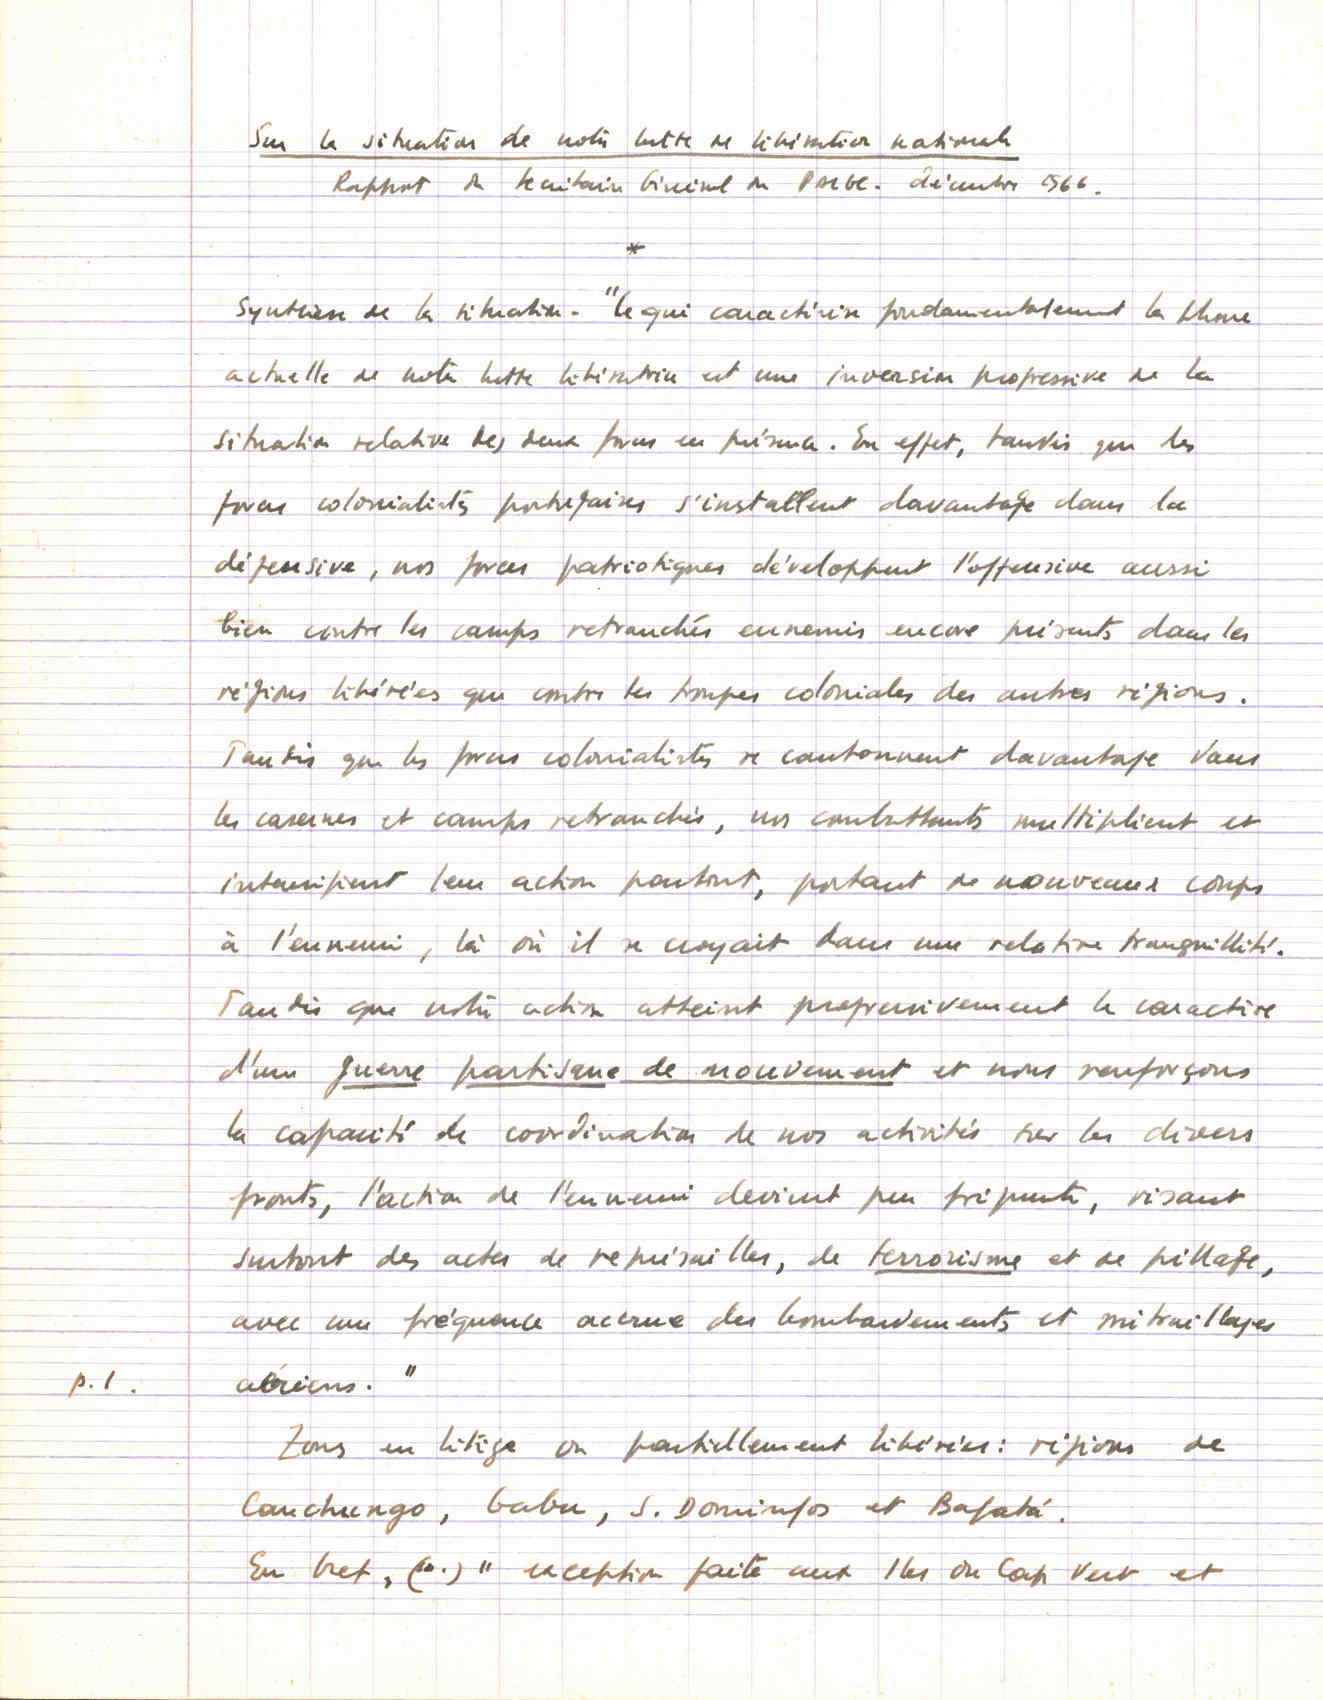 Sur la situation de notre lutte de libération nationale
Rapport du Secrétaire Général du PAIGC. Décembre 1966.
*
Synthèse de la situation - "Ce qui caractérise fondamentalement la phase
actuelle de notre lutte libératrice est une inversion progressive de la
situation relative des deux forces en présence. En effet, tandis que les
forces colonialistes portugaises s'installent davantage dans la
défensive, nos forces patriotiques développent l'offensive aussi
bien contre les camps retranchés ennemis encore présents dans les
régions libérées que contre les troupes coloniales des autres régions.
Tandis que les forces colonialistes se cantonnent davantage dans
les casernes et camps retranchés, nos combattants multiplient et
intensifient leur action partout, portant de nouveaux coups
à l'ennemi, là où il se croyait dans une relative tranquillité.
Tandis que notre action atteint progressivement le caractère
d'une guerre partisane de mouvement et nous renforçons
la capacité de coordination de nos activités sur les divers
fronts, l'action de l'ennemi devient peu fréquente, visant
surtout des actes de représailles, de terrorisme et de pillage,
avec une fréquence accrue des bombardements et mitraillages
p.1. aériens."
Zones en litige ou partiellement libérées : régions de
Canchungo, Gabu, S. Domingos et Bafatá.
En bref, (...) " exception faite aux Iles du Cap Vert et